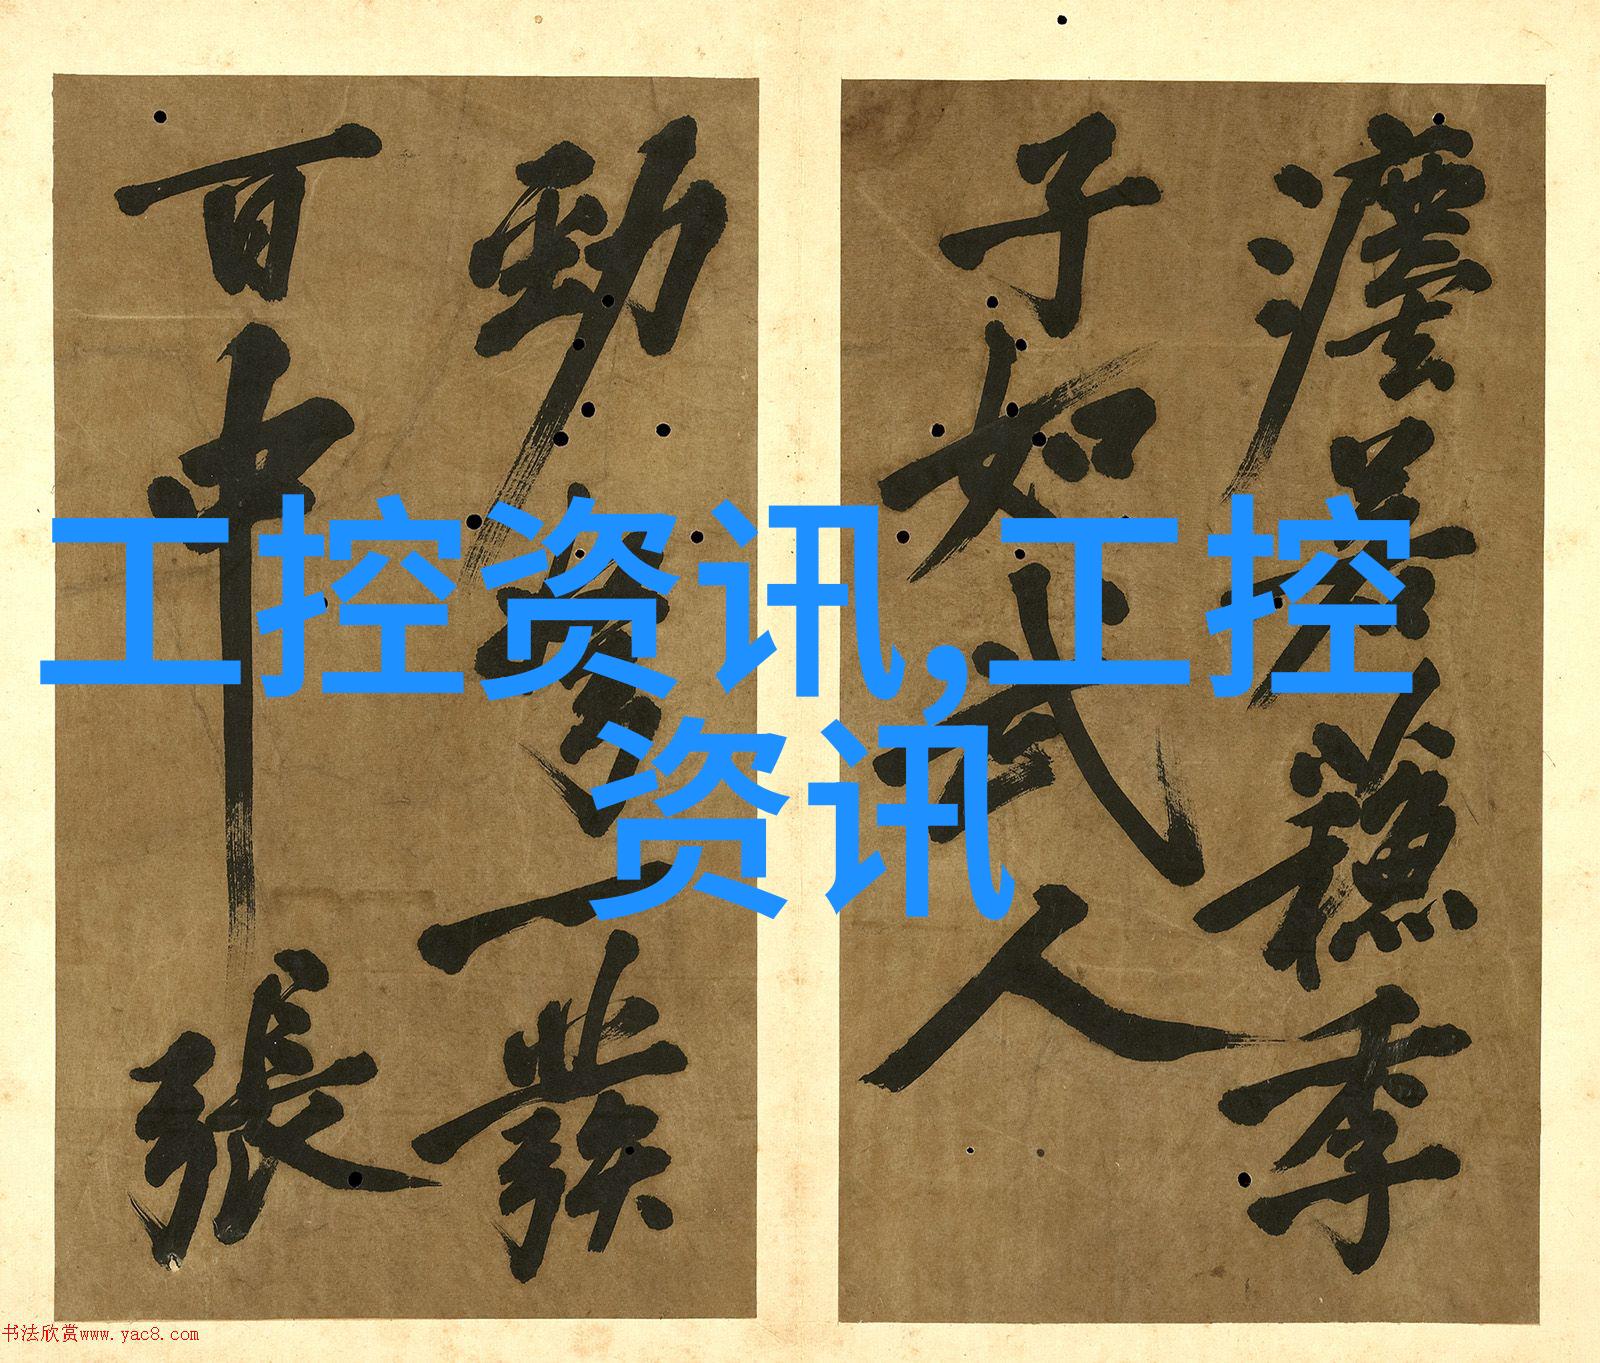 蘓季
子如武人
勁一發
百中張
工控资讯,工控
资讯
书法欣赏www.yac8.com